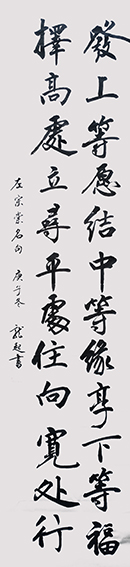 發上等愿结中等緣享下等福
擇高處立尋平處住向寬处行
左宗棠名句 庚子冬 龍起書